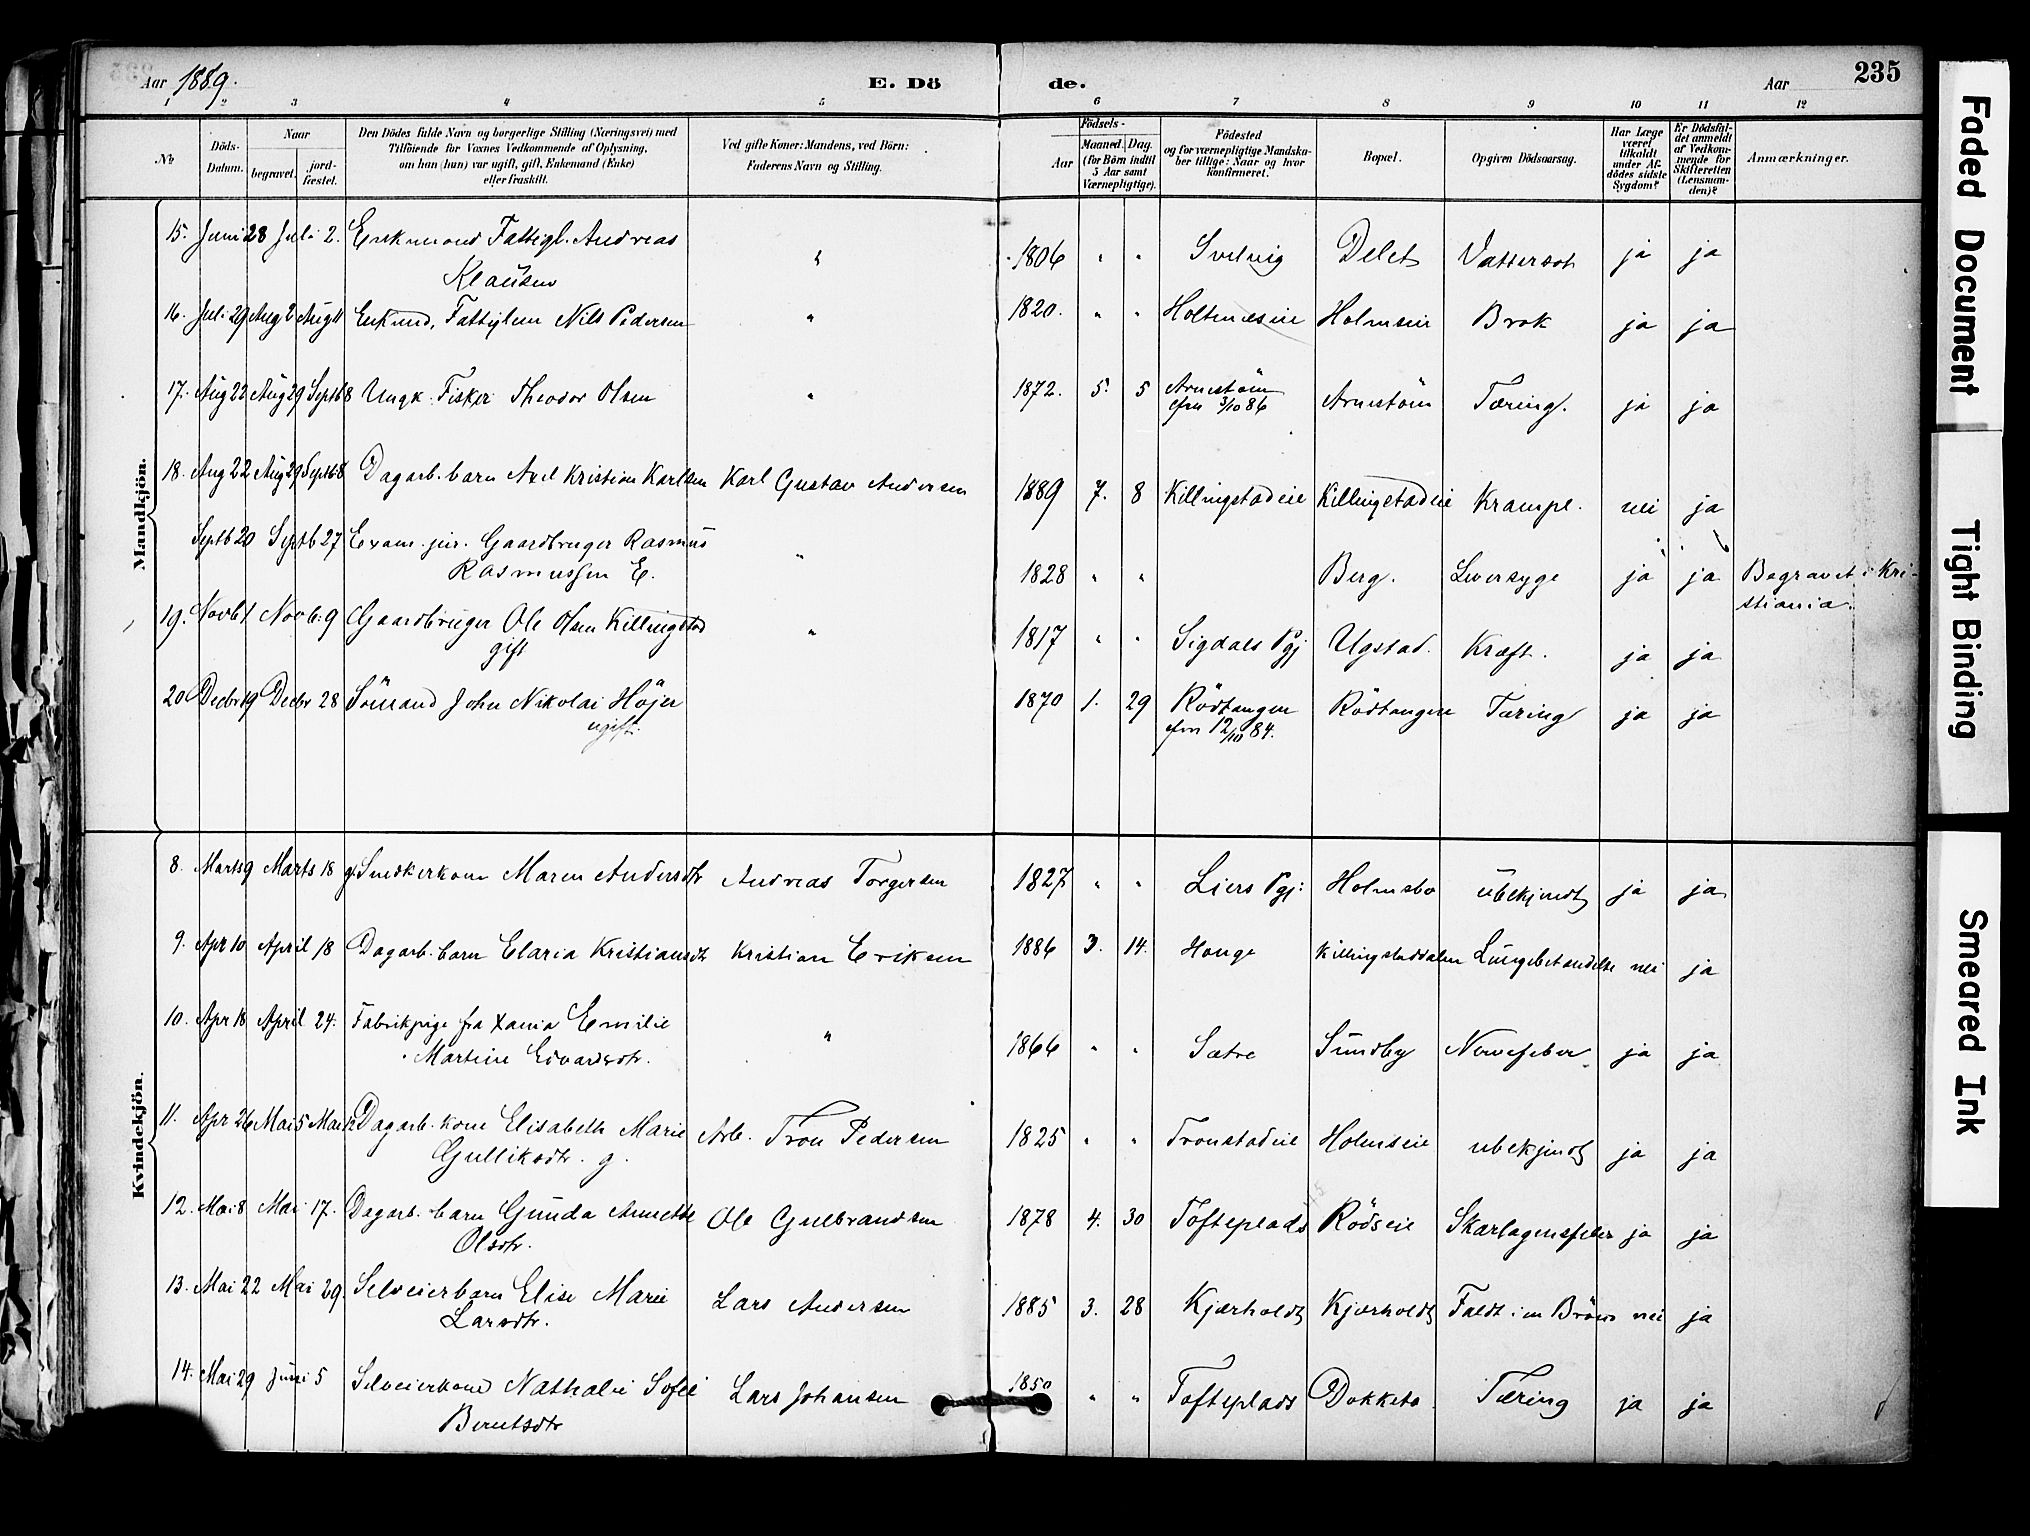 Aar 1889.
E. Dö
de.
Aar
235
1 2 3 4 5 6 7 8 9 10 11 12
No
Döds-Datum.
Naar
begravet.
jord-fæstet.
Den Dödes fulde Navn og borgerlige Stilling (Næringsvei) med
Tilföiende for Voxnes Vedkommende af Oplysning,
om han (hun) var ugift, gift, Enkemand (Enke)
eller fraskilt.
Ved gifte Koner: Mandens, ved Börn:
Faderens Navn og Stilling.
Födsels-
Aar
Maaned. Dag.
(for Börn indtil
5 Aar samt
Værnepligtige).
Födested
og for værnepligtige Mandska-
ber tillige: Naar og hvor
konfirmeret.
Bopæl.
Opgiven Dödsaarsag.
Har Læge
været
tilkaldt
under Af-
dödes sidste
Sygdom?
Er Dödsfal-
det anmeldt
af Vedkom-
mende for
Skifteretten
(Lensman-
den)?
Anmærkninger.
Mandkjön.
15. Juni 28 Juli 2. Enkmand Fattigl. Andreas " 1806 " " Svelvig Delet Vattersot ja ja
Klausen
16. Juli 29 Aug 2 Aug 11 Enkmd. Fattiglem Nils Pedersen " 1820. " " Holtnæseie Holmseie Brok ja ja
17. Aug 22 Aug 29 Septb 8 Ungk. Fisker Theodor Olsen " 1872. 5. 5 Arnestöm Arnestöm Tæring. ja ja
cfm 3/10 86
18. Aug 22 Aug 29 Septb 8 Dagarb. barn Axel Kristian Karlsen Karl Gustav Andersen 1889 7. 8 Killingstadeie Killingstadeie Krampe. nei ja
Septb 20 Septb 27 Exam. jur. Gaardbruger Rasmus "
Rasmussen E. 1828 " " Berg. Leversyge ja ja Begravet i Kri-
stiania.
19. Novb 1 Novb. 9 Gaardbruger Ole Olsen Killingstad " 1817 " " Sigdals Pgj Ugstad. Kræft. ja ja
gift
20 Decbr 19 Decbr 28 Sömand John Nikolai Höjer 1870 1. 29 Rödtangen Rödtangen Tæring ja ja
ugift. cfm 12/10 84.
Kvindekjön.
8. Marts 9 Marts 18 g. Snedkerkone Maren Andersdtr Andreas Torgersen 1827 " " Liers Pgj: Holmsbo ubekjendt ja ja
9. Apr 10 April 18 Dagarb. barn Elaria Kristiansdtr Kristian Eriksen 1886 3. 14. Hauge Killingstaddalen Lungebetændelse nei ja
10. Apr 18 April 24. Fabrikpige fra Xania Emilie " 1866 " " Sætre Sundby Nervefeber ja ja
Martine Edvardsdtr.
11. Apr 26 Mai 5 Mai Dagarb. kone Elisabeth Marie Arb. Tron Pedersen 1825 " " Tronstadeie Holmseie ubekjendt ja ja
Gulliksdtr. g.
12. Mai 8 Mai 17. Dagarb. barn Gunda Annette Ole Gulbrandsen 1878 4. 30 Tofteplads Rödseie Skarlagensfeber ja ja
Olsdtr.
13. Mai 22 Mai 29. Selveierbarn Elise Marie Lars Andersen 1885 3. 28 Kjærholdt Kjærholdt Faldt i en Brönd nei ja
Larsdtr.
14. Mai 29 Juni 5 Selveierkone Nathalie Sofie Lars Johansen 1850 " " Tofteplads Dokketo. Tæring ja ja
Berntsdtr
Faded Document
Tight Binding
Smeared Ink